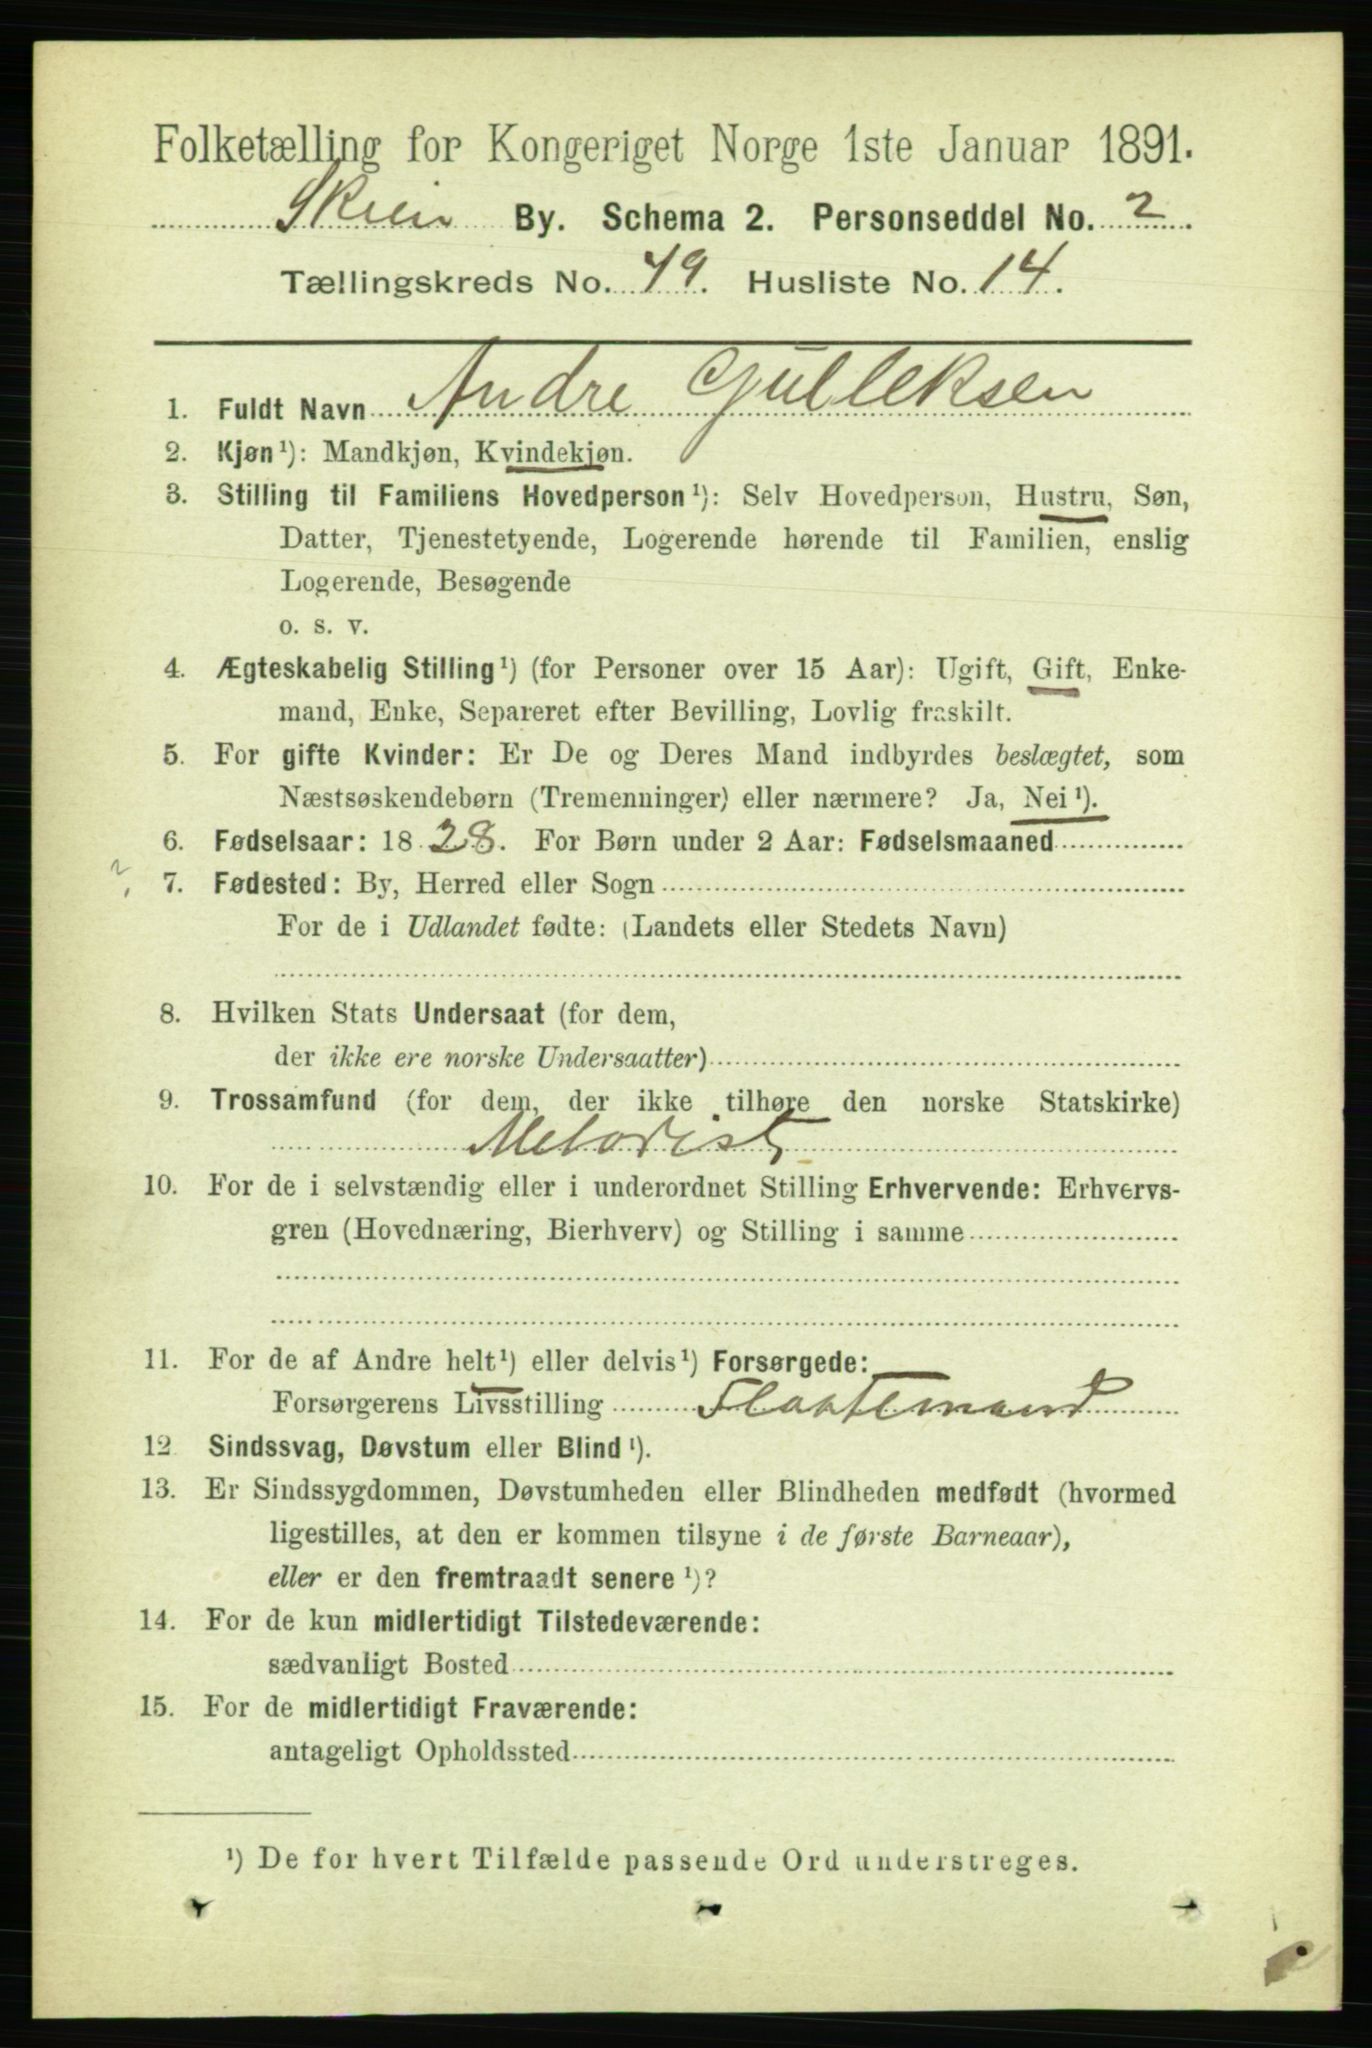 Folketælling for Kongeriget Norge 1ste Januar 1891.
Skien By. Schema 2. Personseddel No. 2
Tællingskreds No. 49. Husliste No. 14.
1. Fuldt Navn Andre Gulleksen
2. Kjøn¹): Mandkjøn, Kvindekjøn.
3. Stilling til Familiens Hovedperson¹): Selv Hovedperson, Hustru, Søn,
Datter, Tjenestetyende, Logerende hørende til Familien, enslig
Logerende, Besøgende
o. s. v.
4. Ægteskabelig Stilling¹) (for Personer over 15 Aar): Ugift, Gift, Enke-
mand, Enke, Separeret efter Bevilling, Lovlig fraskilt.
5. For gifte Kvinder: Er De og Deres Mand indbyrdes beslægtet, som
Næstsøskendebørn (Tremenninger) eller nærmere? Ja, Nei¹).
6. Fødselsaar: 1828. For Børn under 2 Aar: Fødselsmaaned
7. Fødested: By, Herred eller Sogn
For de i Udlandet fødte: (Landets eller Stedets Navn)
8. Hvilken Stats Undersaat (for dem,
der ikke ere norske Undersaatter)
9. Trossamfund (for dem, der ikke tilhøre den norske Statskirke)
Metodist
10. For de i selvstændig eller i underordnet Stilling Erhvervende: Erhvervs-
gren (Hovednæring, Bierhverv) og Stilling i samme
11. For de af Andre helt¹) eller delvis¹) Forsørgede:
Forsørgerens Livsstilling Flaatemand
12 Sindssvag, Døvstum eller Blind¹).
13. Er Sindssygdommen, Døvstumheden eller Blindheden medfødt (hvormed
ligestilles, at den er kommen tilsyne i de første Barneaar),
eller er den fremtraadt senere¹)?
14. For de kun midlertidigt Tilstedeværende:
sædvanligt Bosted
15. For de midlertidigt Fraværende:
antageligt Opholdssted
¹) De for hvert Tilfælde passende Ord understreges.